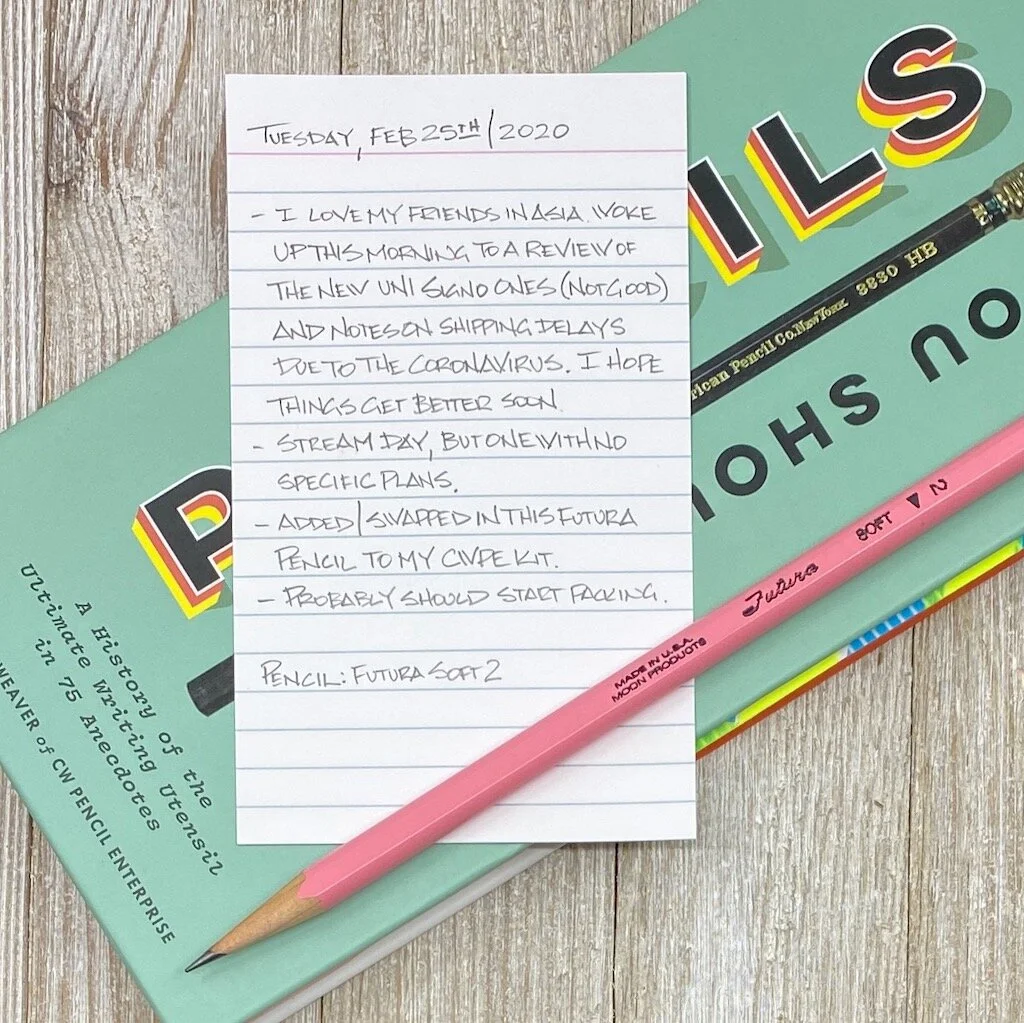 TUESDAY, FEB 25TH/2020
- I LOVE MY FRIENDS IN ASIA. WOKE
UP THIS MORNING TO A REVIEW OF
THE NEW UNI SIGNO ONES (NOT GOOD)
AND NOTES ON SHIPPING DELAYS
DUE TO THE CORONAVIRUS. I HOPE
THINGS GET BETTER SOON.
- STREAM DAY, BUT ONE WITH NO
SPECIFIC PLANS.
- ADDED/SWAPPED IN THIS FUTURA
PENCIL TO MY CWPE KIT.
- PROBABLY SHOULD START PACKING.
PENCIL: FUTURA SOFT 2
P
ILS
rican Pencil Co. New York 3830 HB
OU SHO
A History of the
Ultimate Writing Utensil
in 75 Anecdotes
WEAVER of CW PENCIL ENTERPRISE
MADE IN U.S.A.
MOON PRODUCTS
Futura
SOFT 2